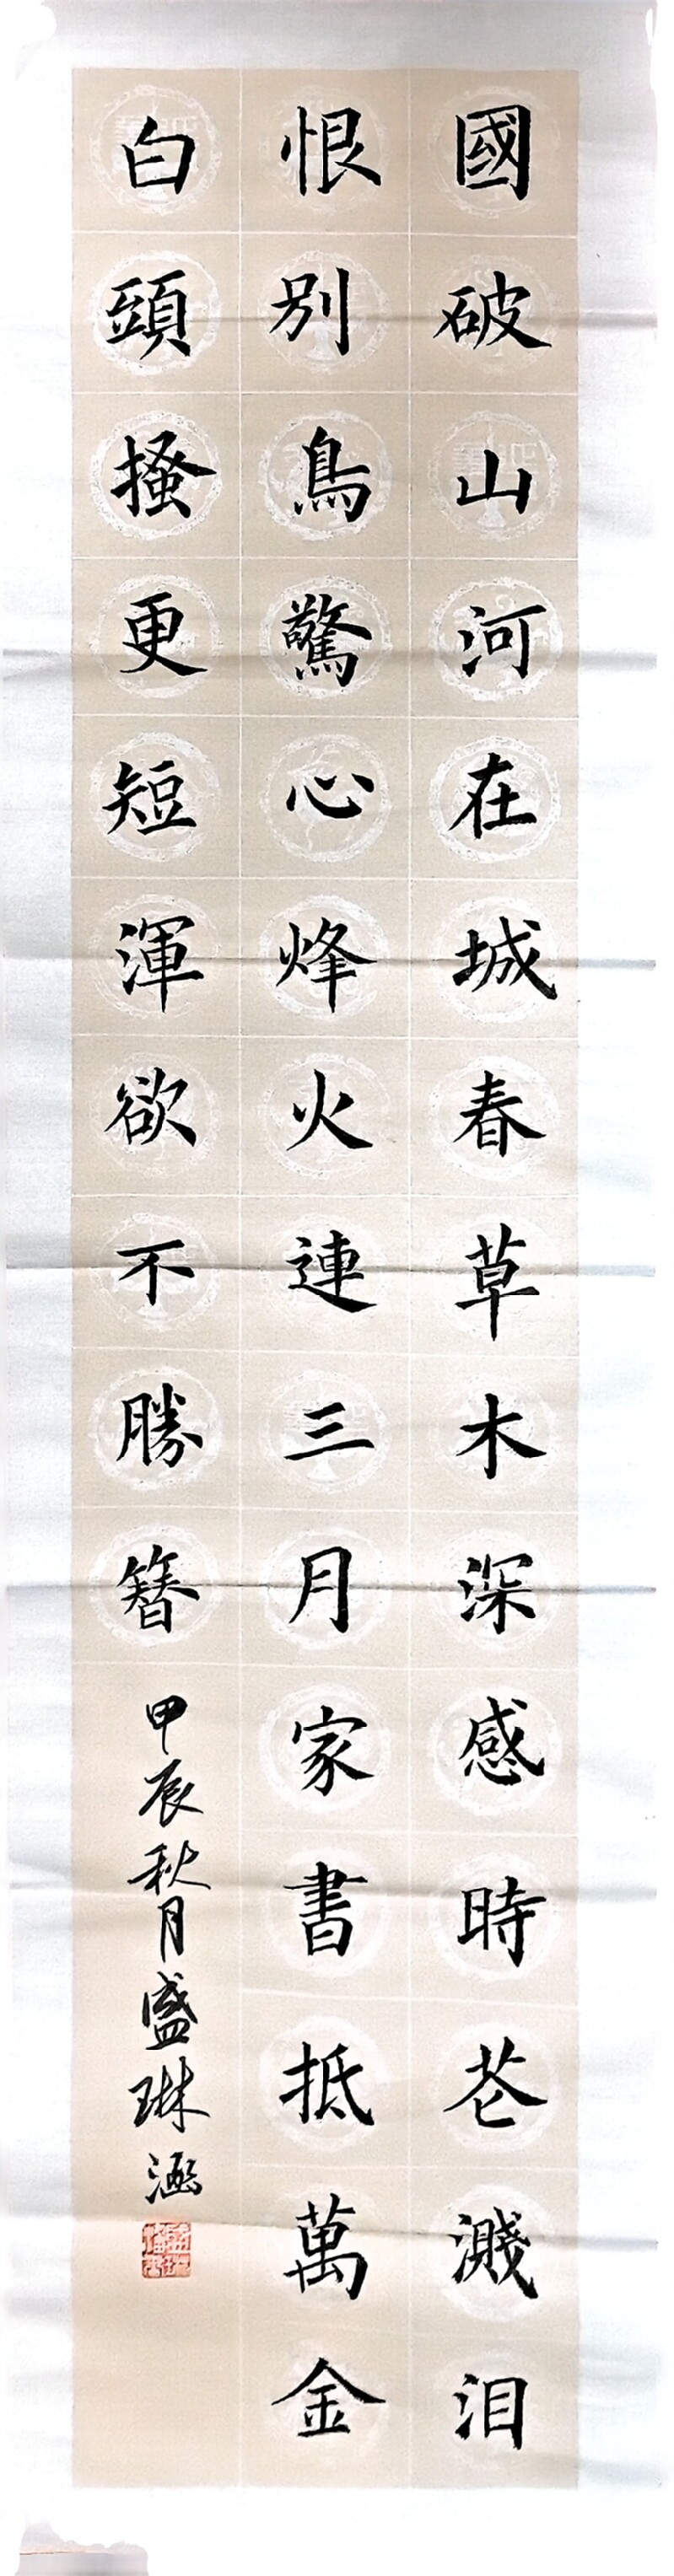 國破山河在城春草木深感時花濺泪
恨别鳥驚心烽火連三月家書抵萬金
白頭搔更短渾欲不勝簪
甲辰秋月盛琳涵